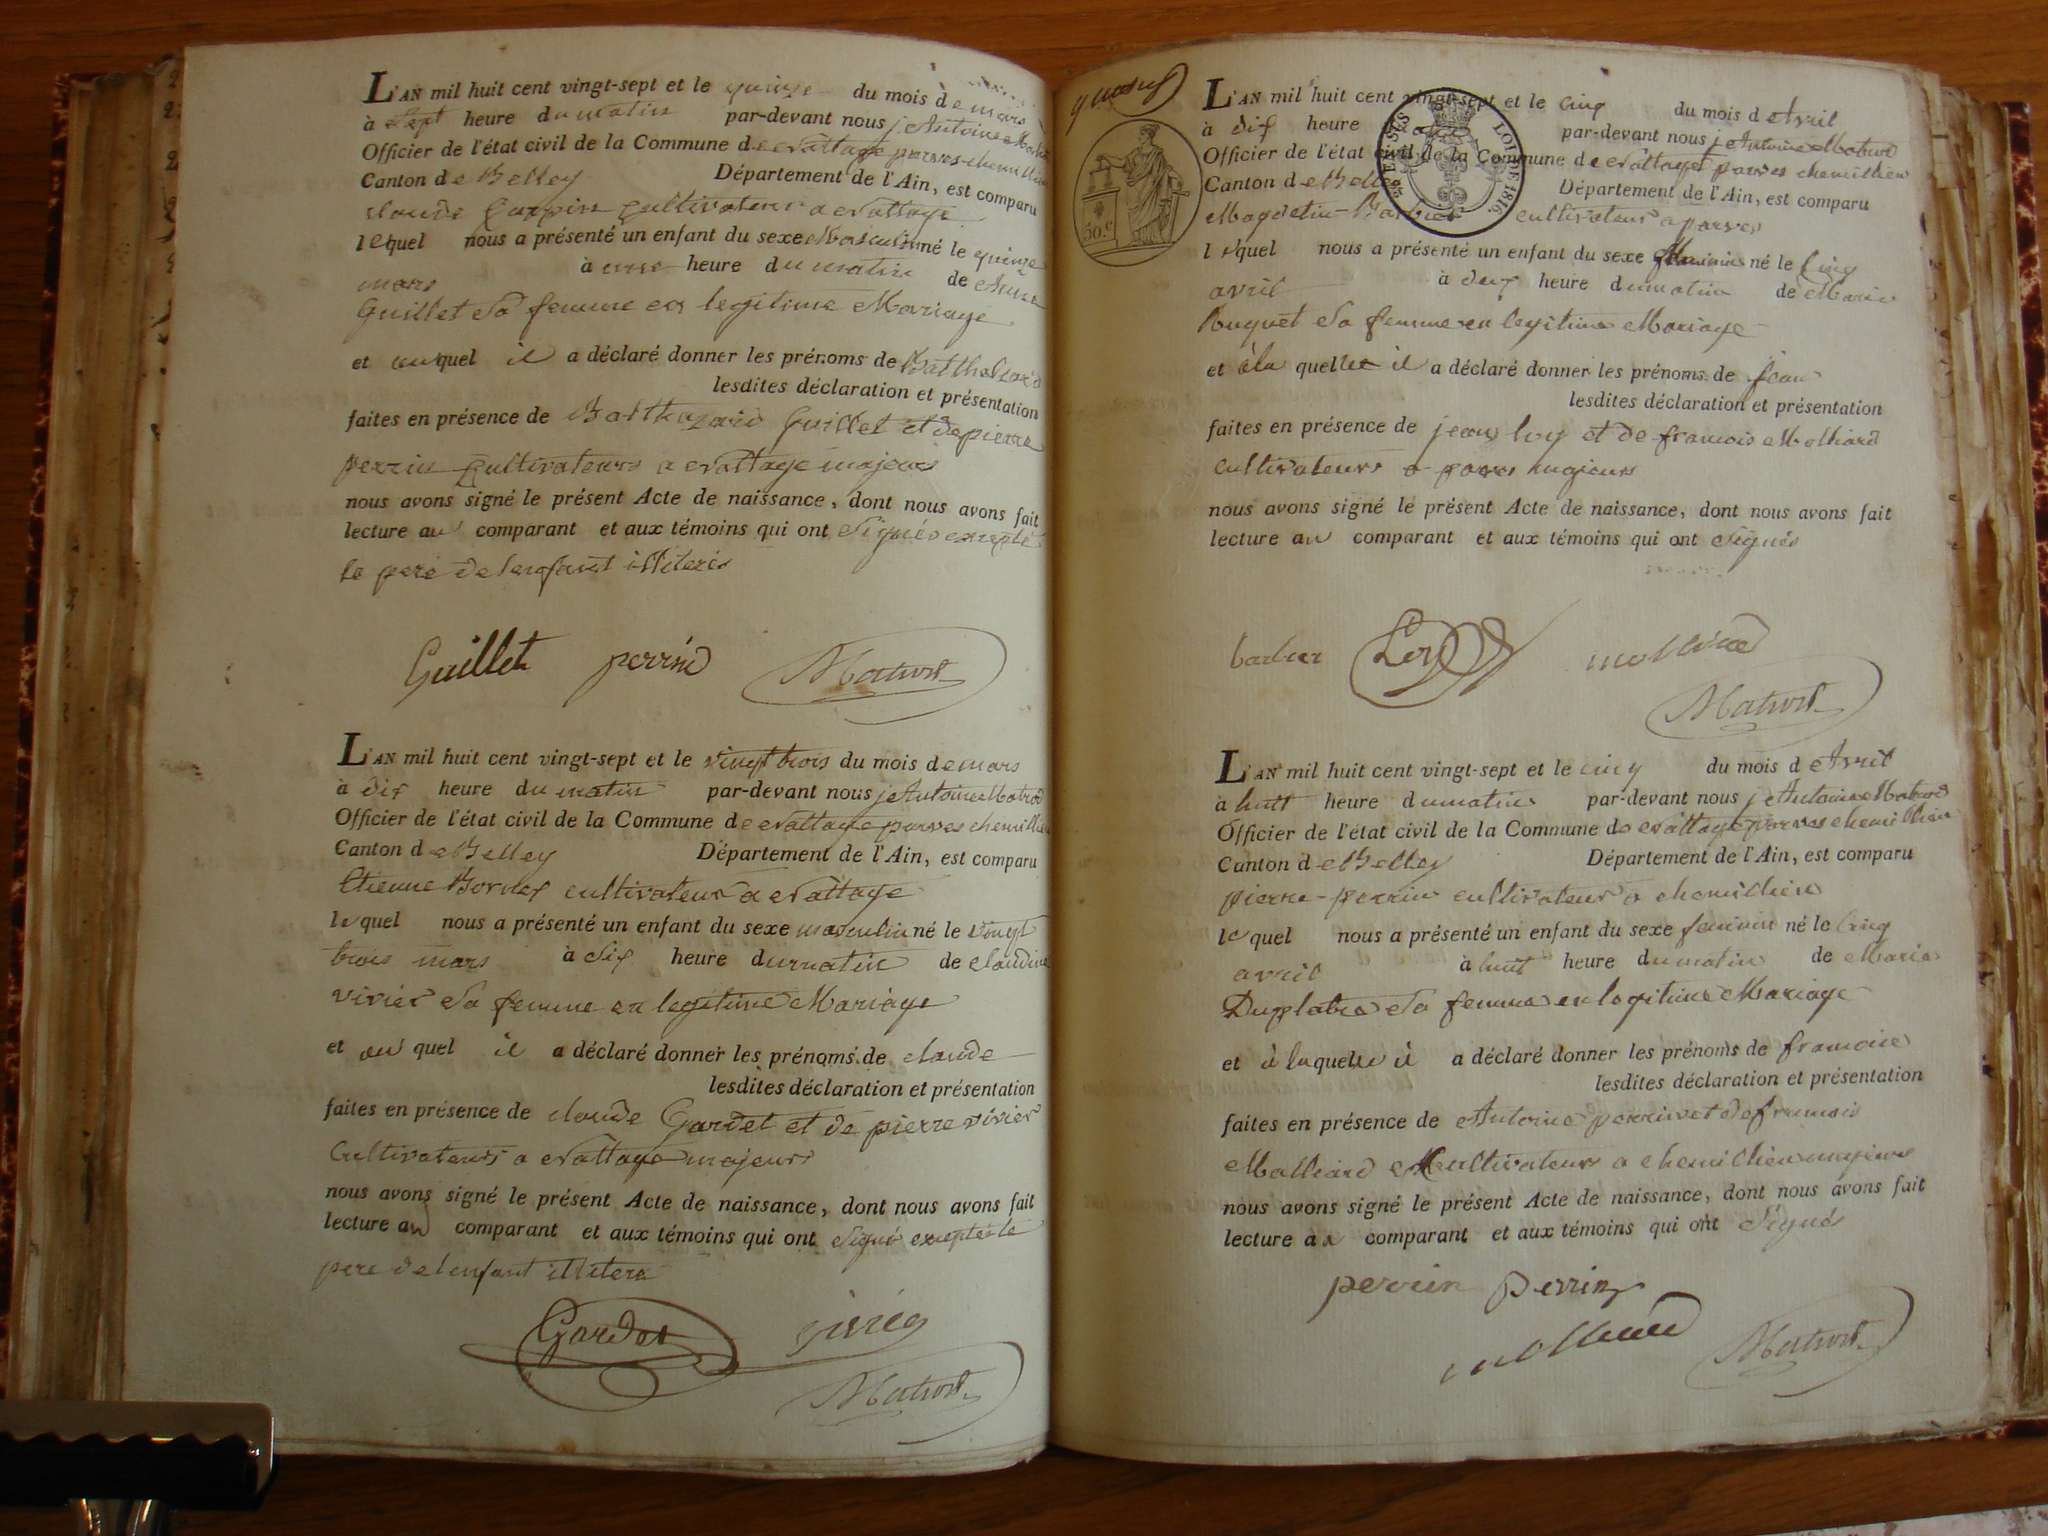 L'AN mil huit cent vingt-sept et le quinze du mois de mars
à sept heure du matin par-devant nous je Antoine
Officier de l'état civil de la Commune de crattage parves chemillien
Canton de Belley Département de l'Ain, est comparu
claude cultivateur a crattage
lequel nous a présenté un enfant du sexe Masculin né le quinze
mars à heure du matin de Anne
Guillet Sa femme en legitime Mariage
et auquel il a déclaré donner les prénoms de
lesdites déclaration et présentation
faites en présence de Balthazard Guillet et de pierre
perrin Cultivateurs a crattage majeurs
nous avons signé le présent Acte de naissance, dont nous avons fait
lecture au comparant et aux témoins qui ont Signés excepté
le pere de lenfant illiteré
Guillet perrin
L'AN mil huit cent vingt-sept et le vingt trois du mois de mars
à dix heure du matin par-devant nous je Antoine
Officier de l'état civil de la Commune de crattage parves chemillien
Canton de Belley Département de l'Ain, est comparu
Etienne cultivateur a crattage
lequel nous a présenté un enfant du sexe masculin né le vingt
trois mars à Six heure du matin de claudine
vivier Sa femme en legitime Mariage
et au quel il a déclaré donner les prénoms de claude
lesdites déclaration et présentation
faites en présence de claude Gardet et de pierre vivier
Cultivateurs a crattage majeurs
nous avons signé le présent Acte de naissance, dont nous avons fait
lecture au comparant et aux témoins qui ont Signé exceptés le
pere de lenfant illitere
Gardet
50.c
EN SUS
LOI DE 1816.
L'AN mil huit cent vingt-sept et le cinq du mois d Avril
à dix heure par-devant nous je Antoine
Officier de l'état civil de la Commune de crattage parves chemillien
Canton de Belley Département de l'Ain, est comparu
Barbier cultivateur a parves
lequel nous a présenté un enfant du sexe né le Cinq
avril à deux heure du matin de Marie
Ruguet Sa femme en legitime Mariage
et à la quelle il a déclaré donner les prénoms de jean
lesdites déclaration et présentation
faites en présence de jean loy et de francois Molliard
cultivateurs a parves majeurs
nous avons signé le présent Acte de naissance, dont nous avons fait
lecture au comparant et aux témoins qui ont Signés
barbier molliard
L'AN mil huit cent vingt-sept et le cinq du mois d Avril
à huit heure du matin par-devant nous je Antoine
Officier de l'état civil de la Commune de crattage parves chemillien
Canton de Belley Département de l'Ain, est comparu
pierre perrin cultivateur a chemillien
lequel nous a présenté un enfant du sexe feminin né le Cinq
avril à huit heure du matin de Marie
Duplatre Sa femme en legitime Mariage
et à laquelle il a déclaré donner les prénoms de francoise
lesdites déclaration et présentation
faites en présence de Antoine perrin et de francois
Molliard cultivateurs a chemillien majeurs
nous avons signé le présent Acte de naissance, dont nous avons fait
lecture au comparant et aux témoins qui ont Signés
perrin perrin
molliard